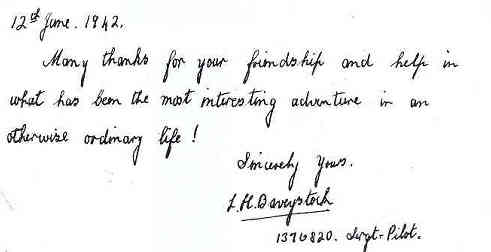 12th June. 1942.
Many thanks for your friendship and help in
what has been the most interesting adventure in an
otherwise ordinary life !
Sincerely yours.
L.H. Baveystock
1376820. Sergt-Pilot.